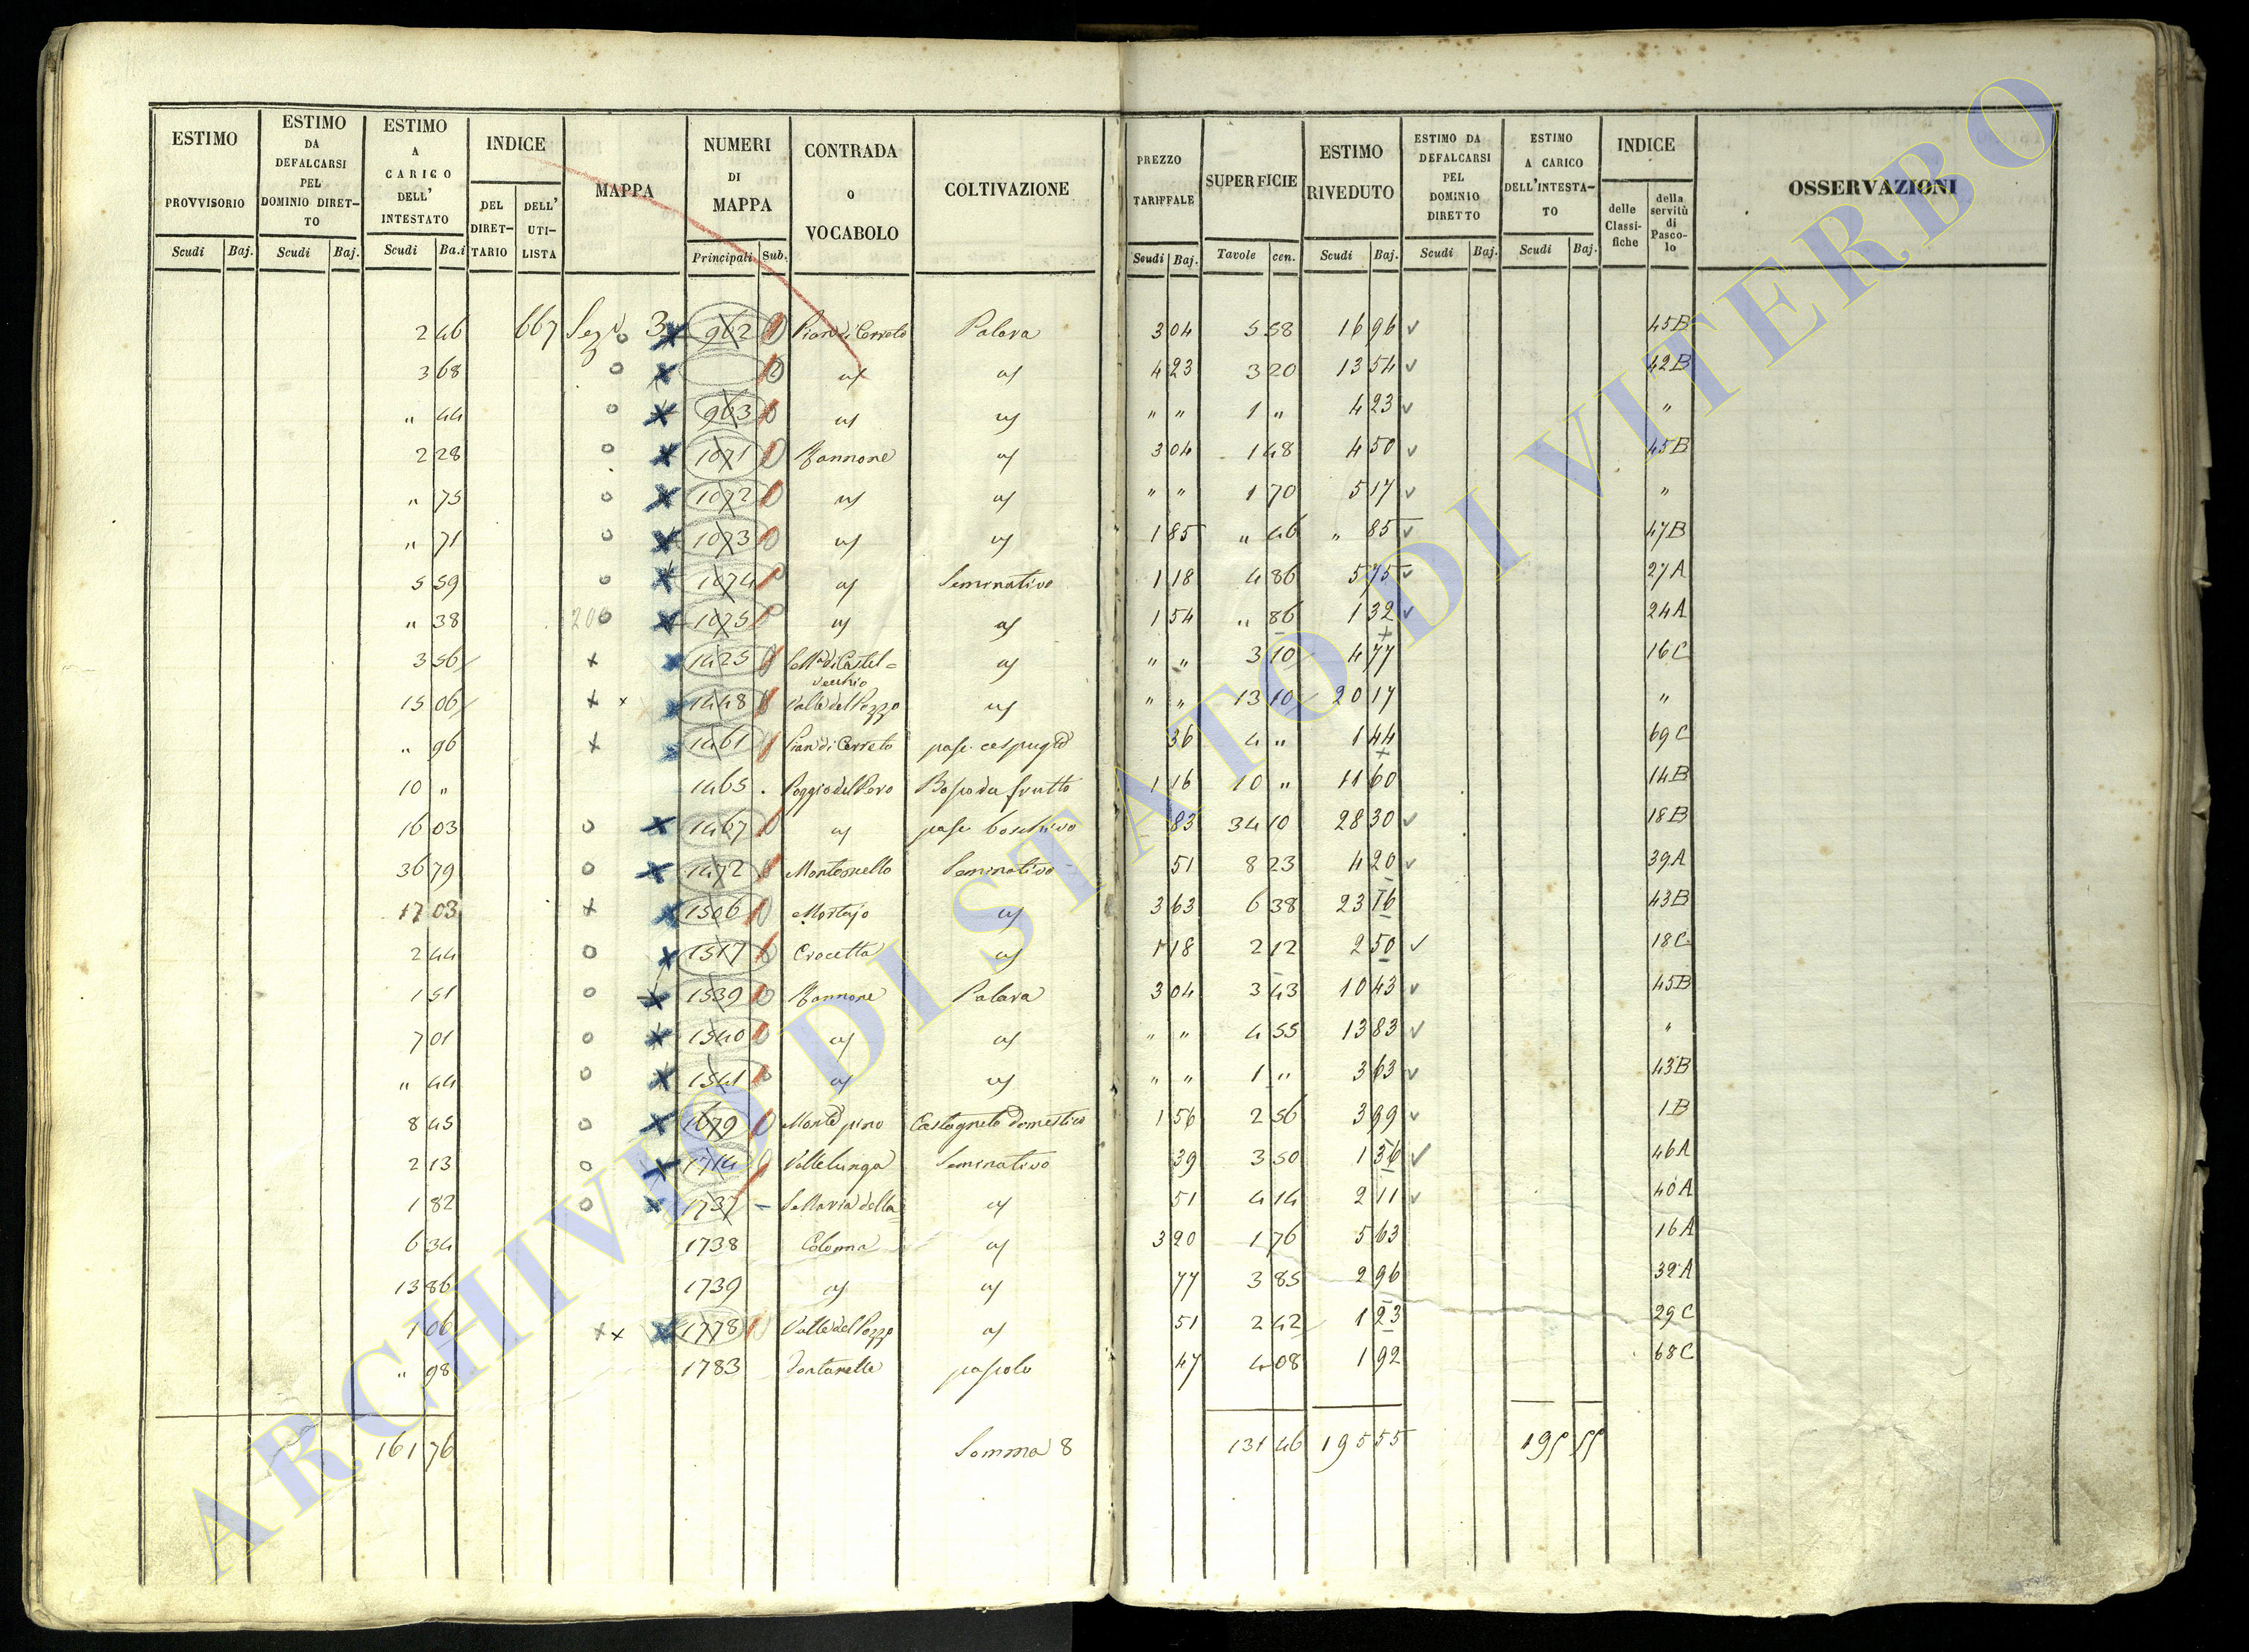 ESTIMO PROVVISORIO | ESTIMO DA DEFALCARSI PEL DOMINIO DIRET-TO | ESTIMO A CARICO DELL' INTESTATO | INDICE | MAPPA | NUMERI DI MAPPA | CONTRADA o VOCABOLO | COLTIVAZIONE | PREZZO TARIFFALE | SUPERFICIE | ESTIMO RIVEDUTO | ESTIMO DA DEFALCARSI PEL DOMINIO DIRETTO | ESTIMO A CARICO DELL'INTESTA-TO | INDICE | OSSERVAZIONI
DEL DIRET-TARIO | DELL' UTI-LISTA | delle Classi-fiche | della servitù di Pasco-lo
Scudi | Baj. | Scudi | Baj. | Scudi | Ba.i | Principali | Sub. | Scudi | Baj. | Tavole | cen. | Scudi | Baj. | Scudi | Baj. | Scudi | Baj.
2 46 | 667 | 3 | 962 | 1 | Pian di Cerreto | Palara | 3 04 | 5 58 | 16 96 | 45B
3 68 | 2 | " | " | 4 23 | 3 20 | 13 54 | 42B
" 44 | 963 | " | " | " " | 1 " | 4 23 | "
2 28 | 1071 | Mannone | " | 3 04 | 1 48 | 4 50 | 45B
" 75 | 1072 | " | " | " " | 1 70 | 5 17 | "
" 71 | 1073 | " | " | 1 85 | " 46 | " 85 | 47B
5 59 | 1074 | " | Seminativo | 1 18 | 4 86 | 5 75 | 27A
" 38 | 200 | 1075 | " | " | 1 54 | " 86 | 1 32 | 24A
3 56 | 1425 | di Castel=vecchio | " | " " | 3 10 | 4 77 | 16C
15 06 | 1448 | Valle del Pozzo | " | " " | 13 10 | 20 17 | "
" 96 | 1461 | Pian di Cerreto | pasc. cespugto | 36 | 4 " | 1 44 | 69C
10 " | 1465 | Poggio del Pero | Bosco da frutto | 1 16 | 10 " | 11 60 | 14B
16 03 | 1467 | " | pasc. boschivo | 83 | 34 10 | 28 30 | 18B
36 79 | 1472 | Monteonello | Seminativo | 51 | 8 23 | 4 20 | 39A
17 03 | 1506 | Mortajo | " | 3 63 | 6 38 | 23 16 | 43B
2 44 | 1517 | Crocetta | " | 1 18 | 2 12 | 2 50 | 18C
1 51 | 1539 | Mannone | Palara | 3 04 | 3 43 | 10 43 | 45B
7 01 | 1540 | " | " | " " | 4 55 | 13 83 | "
" 44 | 1541 | " | " | " " | 1 " | 3 63 | 43B
8 45 | 1679 | Monte pino | Castagneto domestico | 1 56 | 2 56 | 3 99 | 1B
2 13 | 1714 | Vallelunga | Seminativo | 39 | 3 50 | 1 36 | 46A
1 82 | 1737 | S. Maria della= | " | 51 | 4 14 | 2 11 | 40A
6 34 | 1738 | Colonna | " | 3 20 | 1 76 | 5 63 | 16A
13 86 | 1739 | " | " | 77 | 3 85 | 2 96 | 32A
1 06 | 1778 | Valle del Pozzo | " | 51 | 2 42 | 1 23 | 29C
" 98 | 1783 | Fontanella | pascolo | 47 | 4 08 | 1 92 | 68C
161 76 | Somma 8 | 131 46 | 195 55 | 195 55
ARCHIVIO DI STATO DI VITERBO